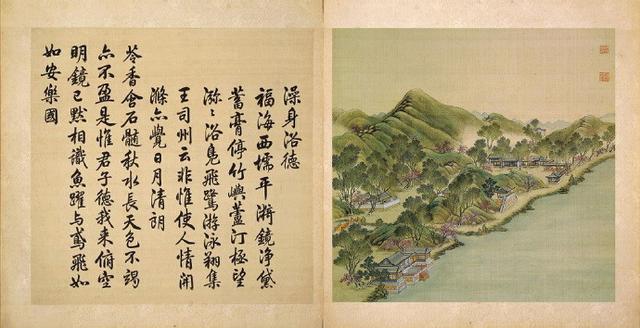 澡身浴德
福海西壖平漪鏡浄黛
蓄膏停竹嶼蘆汀極望
瀰〻浴鳧飛鷺游泳翔集
王司州云非惟使人情開
滌亦覺日月清朗
苓香含石髓秋水長天色不竭
亦不盈是惟君子德我來俯空
明鏡已默相識魚躍與鳶飛如
如安樂國